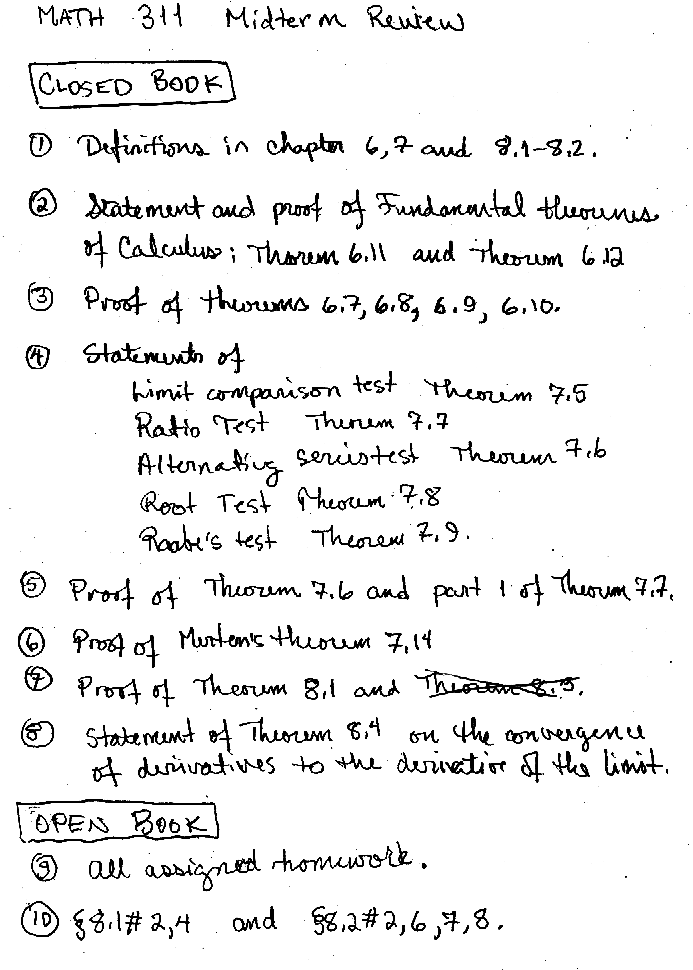 MATH 311 Midterm Review
CLOSED BOOK
① Definitions in chapter 6,7 and 8.1-8.2.
② Statement and proof of Fundamental theorems
of Calculus; Theorem 6.11 and Theorem 6.12
③ Proof of theorems 6.7, 6.8, 6.9, 6.10.
④ Statements of
Limit comparison test Theorem 7.5
Ratio Test Theorem 7.7
Alternating series test Theorem 7.6
Root Test Theorem 7.8
Raabe's test Theorem 7.9.
⑤ Proof of Theorem 7.6 and part 1 of Theorem 7.7.
⑥ Proof of Merten's theorem 7.14
⑦ Proof of Theorem 8.1 and Theorem 8.3.
⑧ Statement of Theorem 8.4 on the convergence
of derivatives to the derivative of the limit.
OPEN BOOK
⑨ All assigned homework.
⑩ §8.1# 2,4 and §8.2# 2,6,7,8.